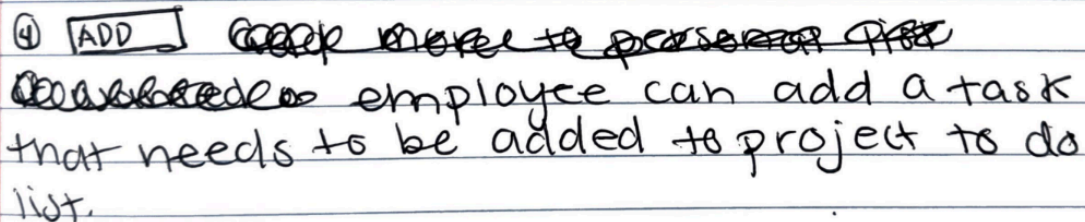 ④ ADD
employee can add a task
that needs to be added to project to do
list.